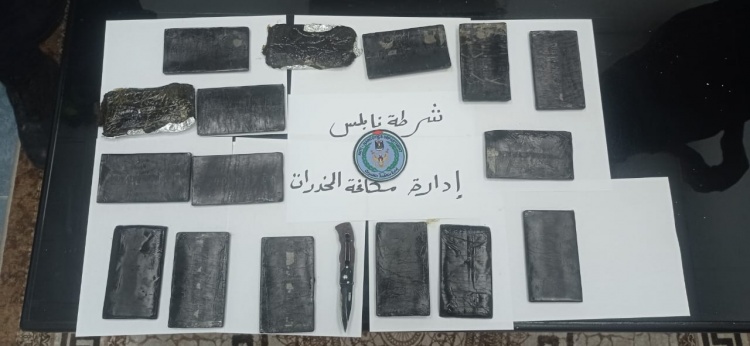 شرطة نابلس
إدارة مكافحة الخدرات